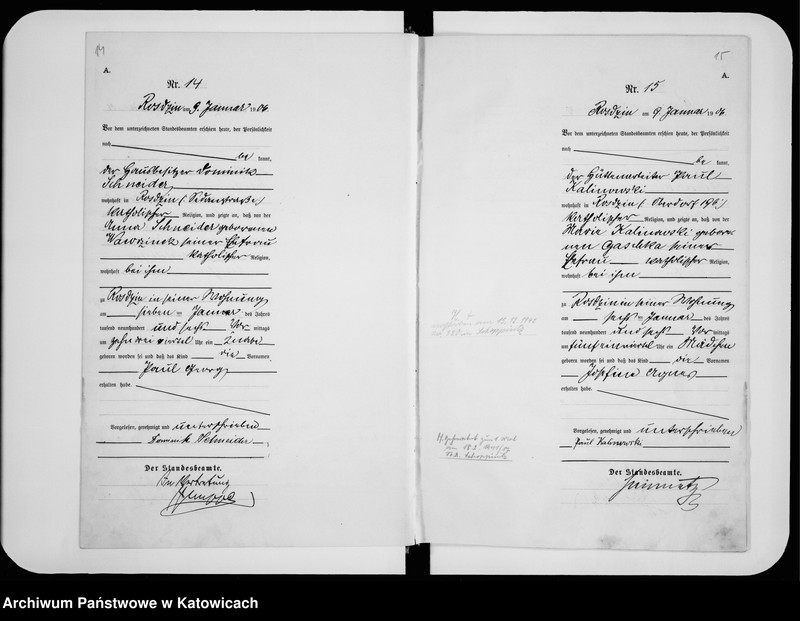 14
A.
Nr. 14
Rosdzin am 9. Januar 1906
Vor dem unterzeichneten Standesbeamten erschien heute, der Persönlichkeit
nach
be kannt,
der Hausbesitzer Dominik
Schneider
wohnhaft in Rosdzin
katholischer Religion, und zeigte an, daß von der
Anna Schneider geborenen
seiner Ehefrau
katholischer Religion,
wohnhaft bei ihm
zu Rosdzin in seiner Wohnung
am sieben ten Januar des Jahres
tausend neunhundert und sechs Vor mittags
um zehn drei viertel Uhr ein Knabe
geboren worden sei und daß das Kind die Vornamen
Paul Georg
erhalten habe.
Vorgelesen, genehmigt und unterschrieben
Dominik Schneider
Der Standesbeamte.
In Vertretung
15
A.
Nr. 15
Rosdzin am 9. Januar 1906
Vor dem unterzeichneten Standesbeamten erschien heute, der Persönlichkeit
nach
be kannt,
der Hüttenarbeiter Paul
Kalinowski
wohnhaft in Rosdzin
katholischer Religion, und zeigte an, daß von der
Marie Kalinowski gebore-
nen seiner
Ehefrau katholischer Religion,
wohnhaft bei ihm
zu Rosdzin in seiner Wohnung
am sechs ten Januar des Jahres
tausend neunhundert und sechs Vor mittags
um fünf einviertel Uhr ein Mädchen
geboren worden sei und daß das Kind die Vornamen
Josefine Agnes
erhalten habe.
Vorgelesen, genehmigt und unterschrieben
Paul Kalinowski
Der Standesbeamte.
Archiwum Państwowe w Katowicach